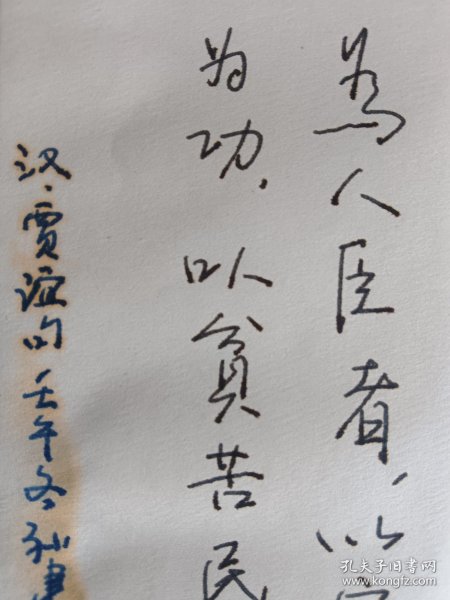 為人臣者，以
为功，以貧苦民
汉·賈谊句 壬午冬 孙
孔夫子旧书网
www.kongfz.com